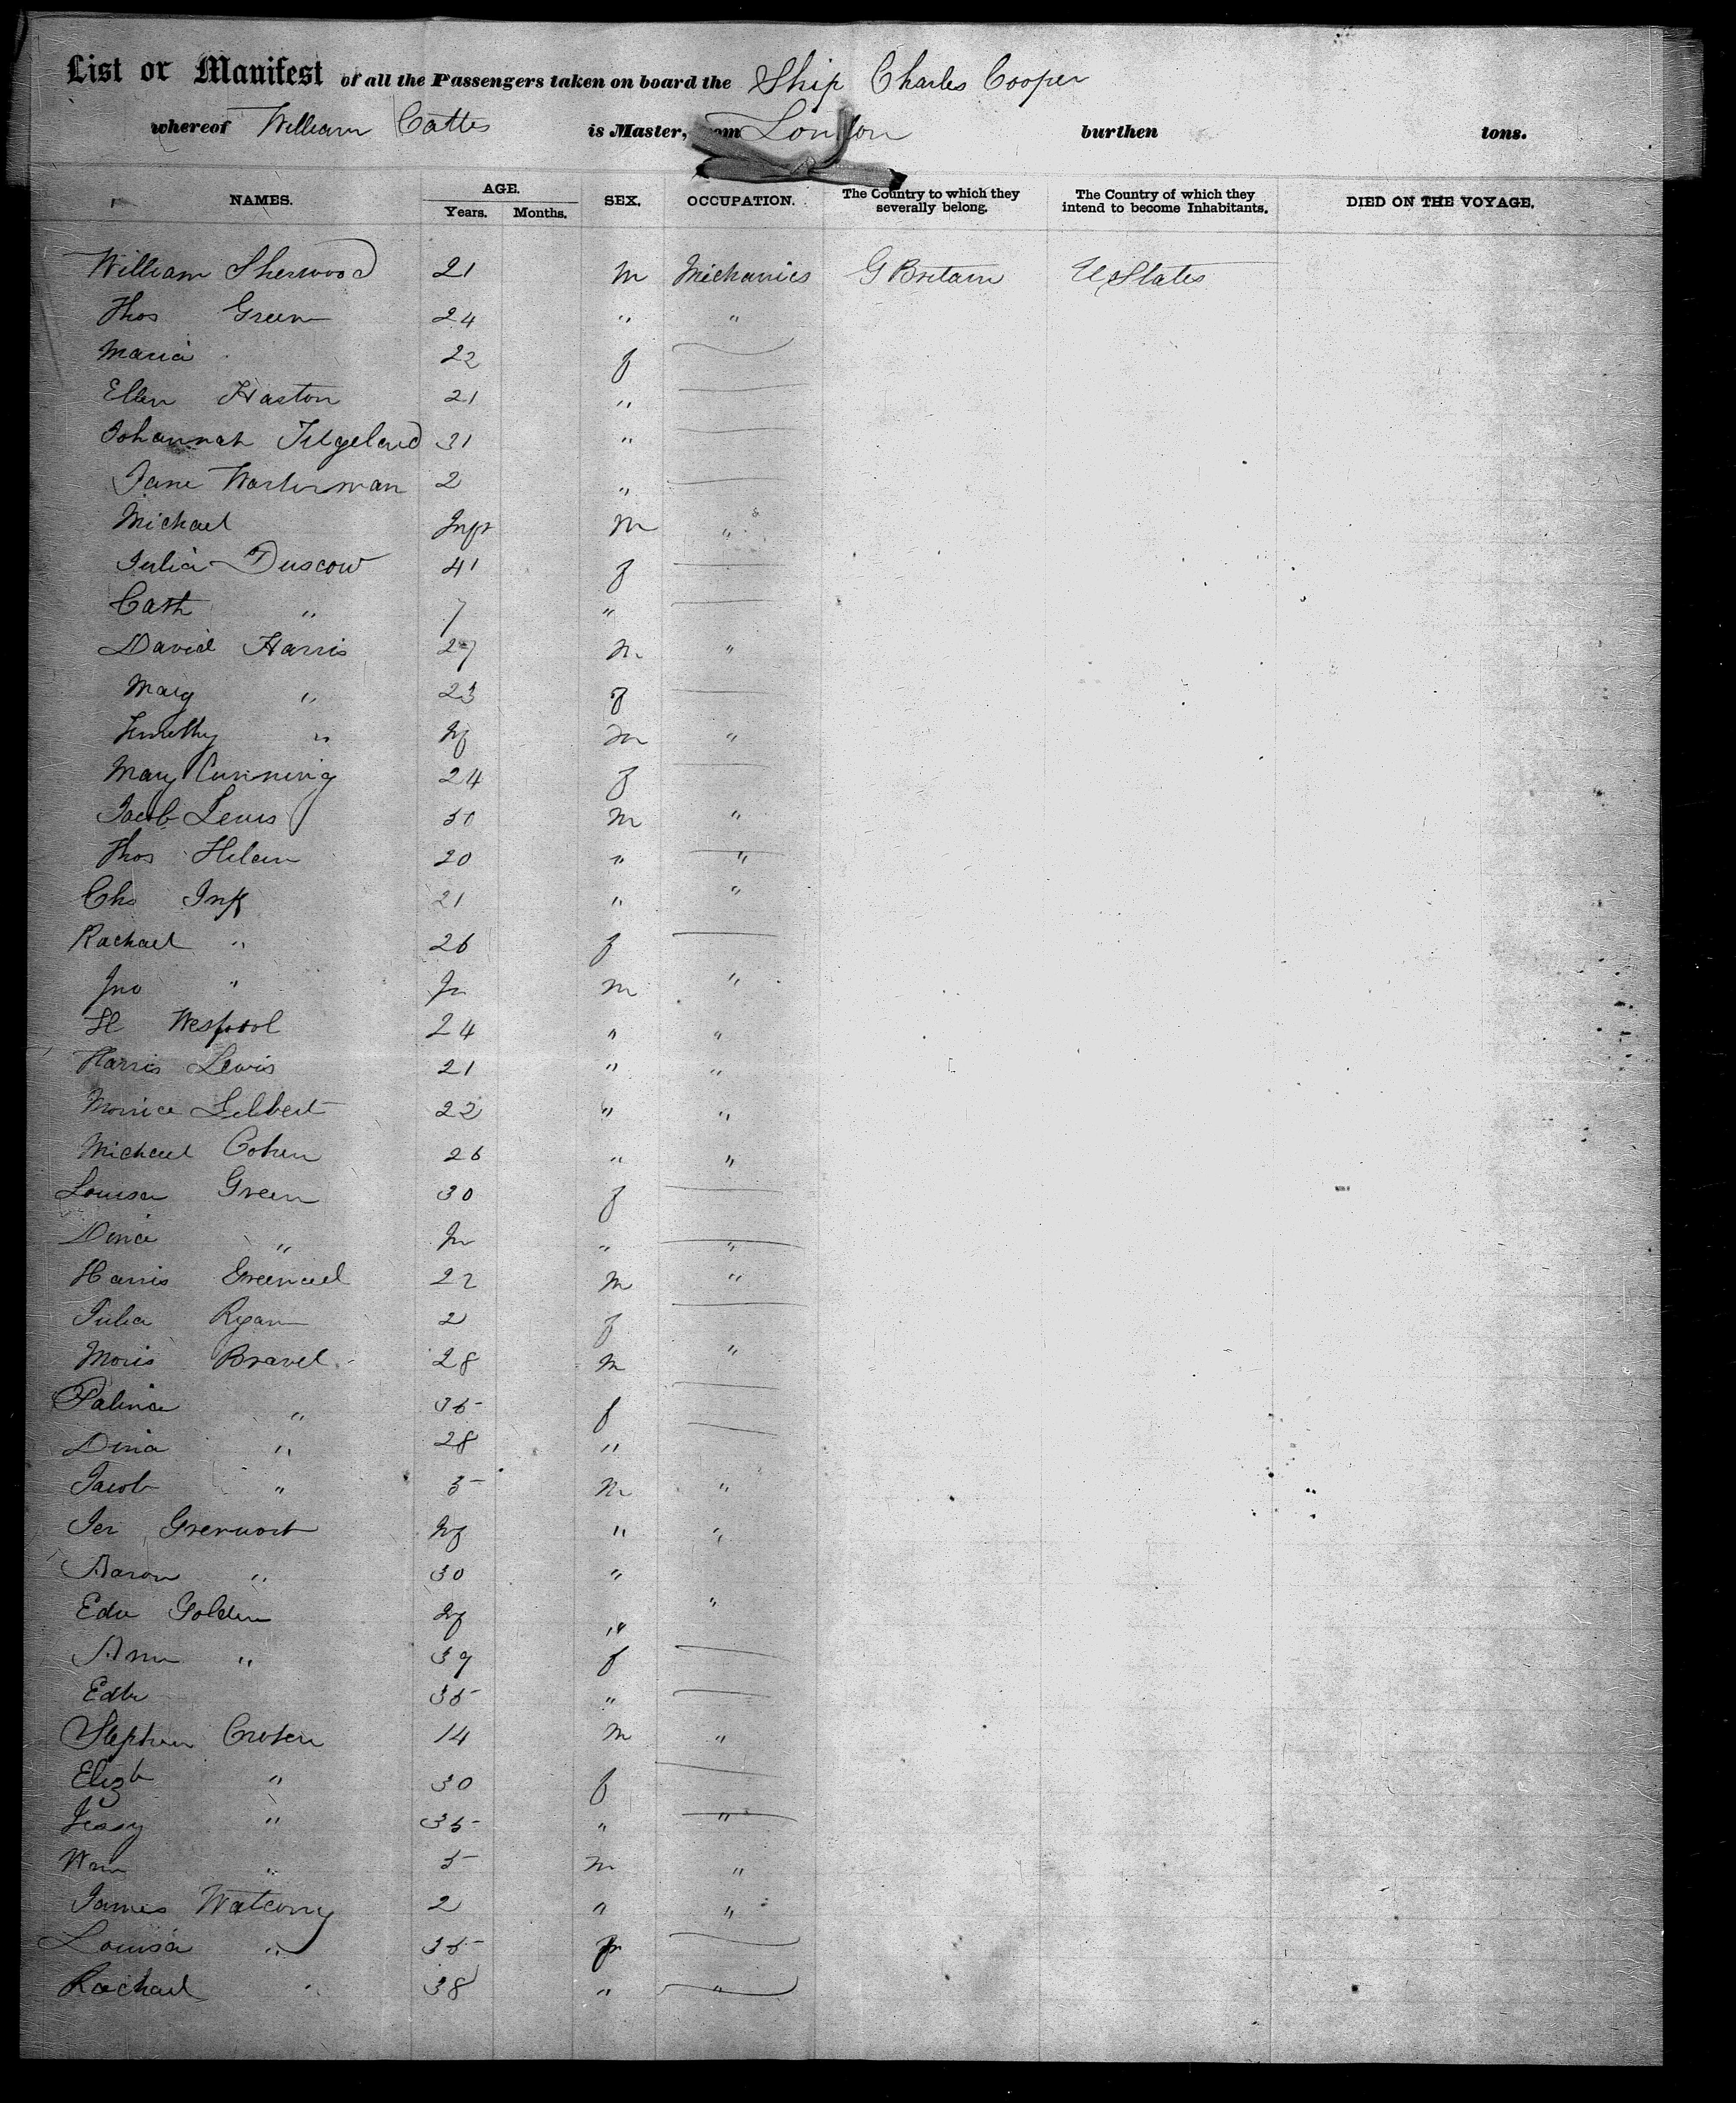 List or Manifest of all the Passengers taken on board the Ship Charles Cooper
whereof William Cutts is Master, from London burthen tons.
NAMES. AGE. Years. Months. SEX. OCCUPATION. The Country to which they severally belong. The Country of which they intend to become Inhabitants. DIED ON THE VOYAGE.
William Sherwood 21 m Michanics G Britain U States
Thos Green 24 " "
Maria 22 f
Ellen Haston 21 "
Johannah 31 "
Jane Warterman 2 "
Michael Inft m "
Julia Duscow 41 f
Cath " 7 "
David Harris 27 m "
Marg " 23 f
Timothy " Inf m "
Mary Cunning 24 f
Jacob Lewis 30 m "
Thos 20 " "
Chs Ink 21 " "
Rachael " 26 f
Jno " In m "
H 24 " "
Harris Lewis 21 " "
22 " "
Michael Cohen 26 " "
Louisa Green 30 f
Dina " In " "
Harris 22 m "
Julia Ryan 2 f
Moris Bravel 28 m "
Palina " 35 f
Dina " 28 "
Jacob " 5 m "
Inf " "
Aaron " 30 "
Edw Golden Inf " "
Ann " 39 f
35 "
Stephen 14 m "
Elizb " 30 f
" 35 " "
Wm " 5 m "
James 2 " "
Louisa " 35 f
Rachael " 38 " "